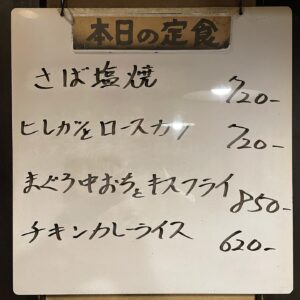 本日の定食
さば塩焼 720-
ヒレカツとロースカツ 720-
まぐろ中おちとキスフライ 850-
チキンカレーライス 620-